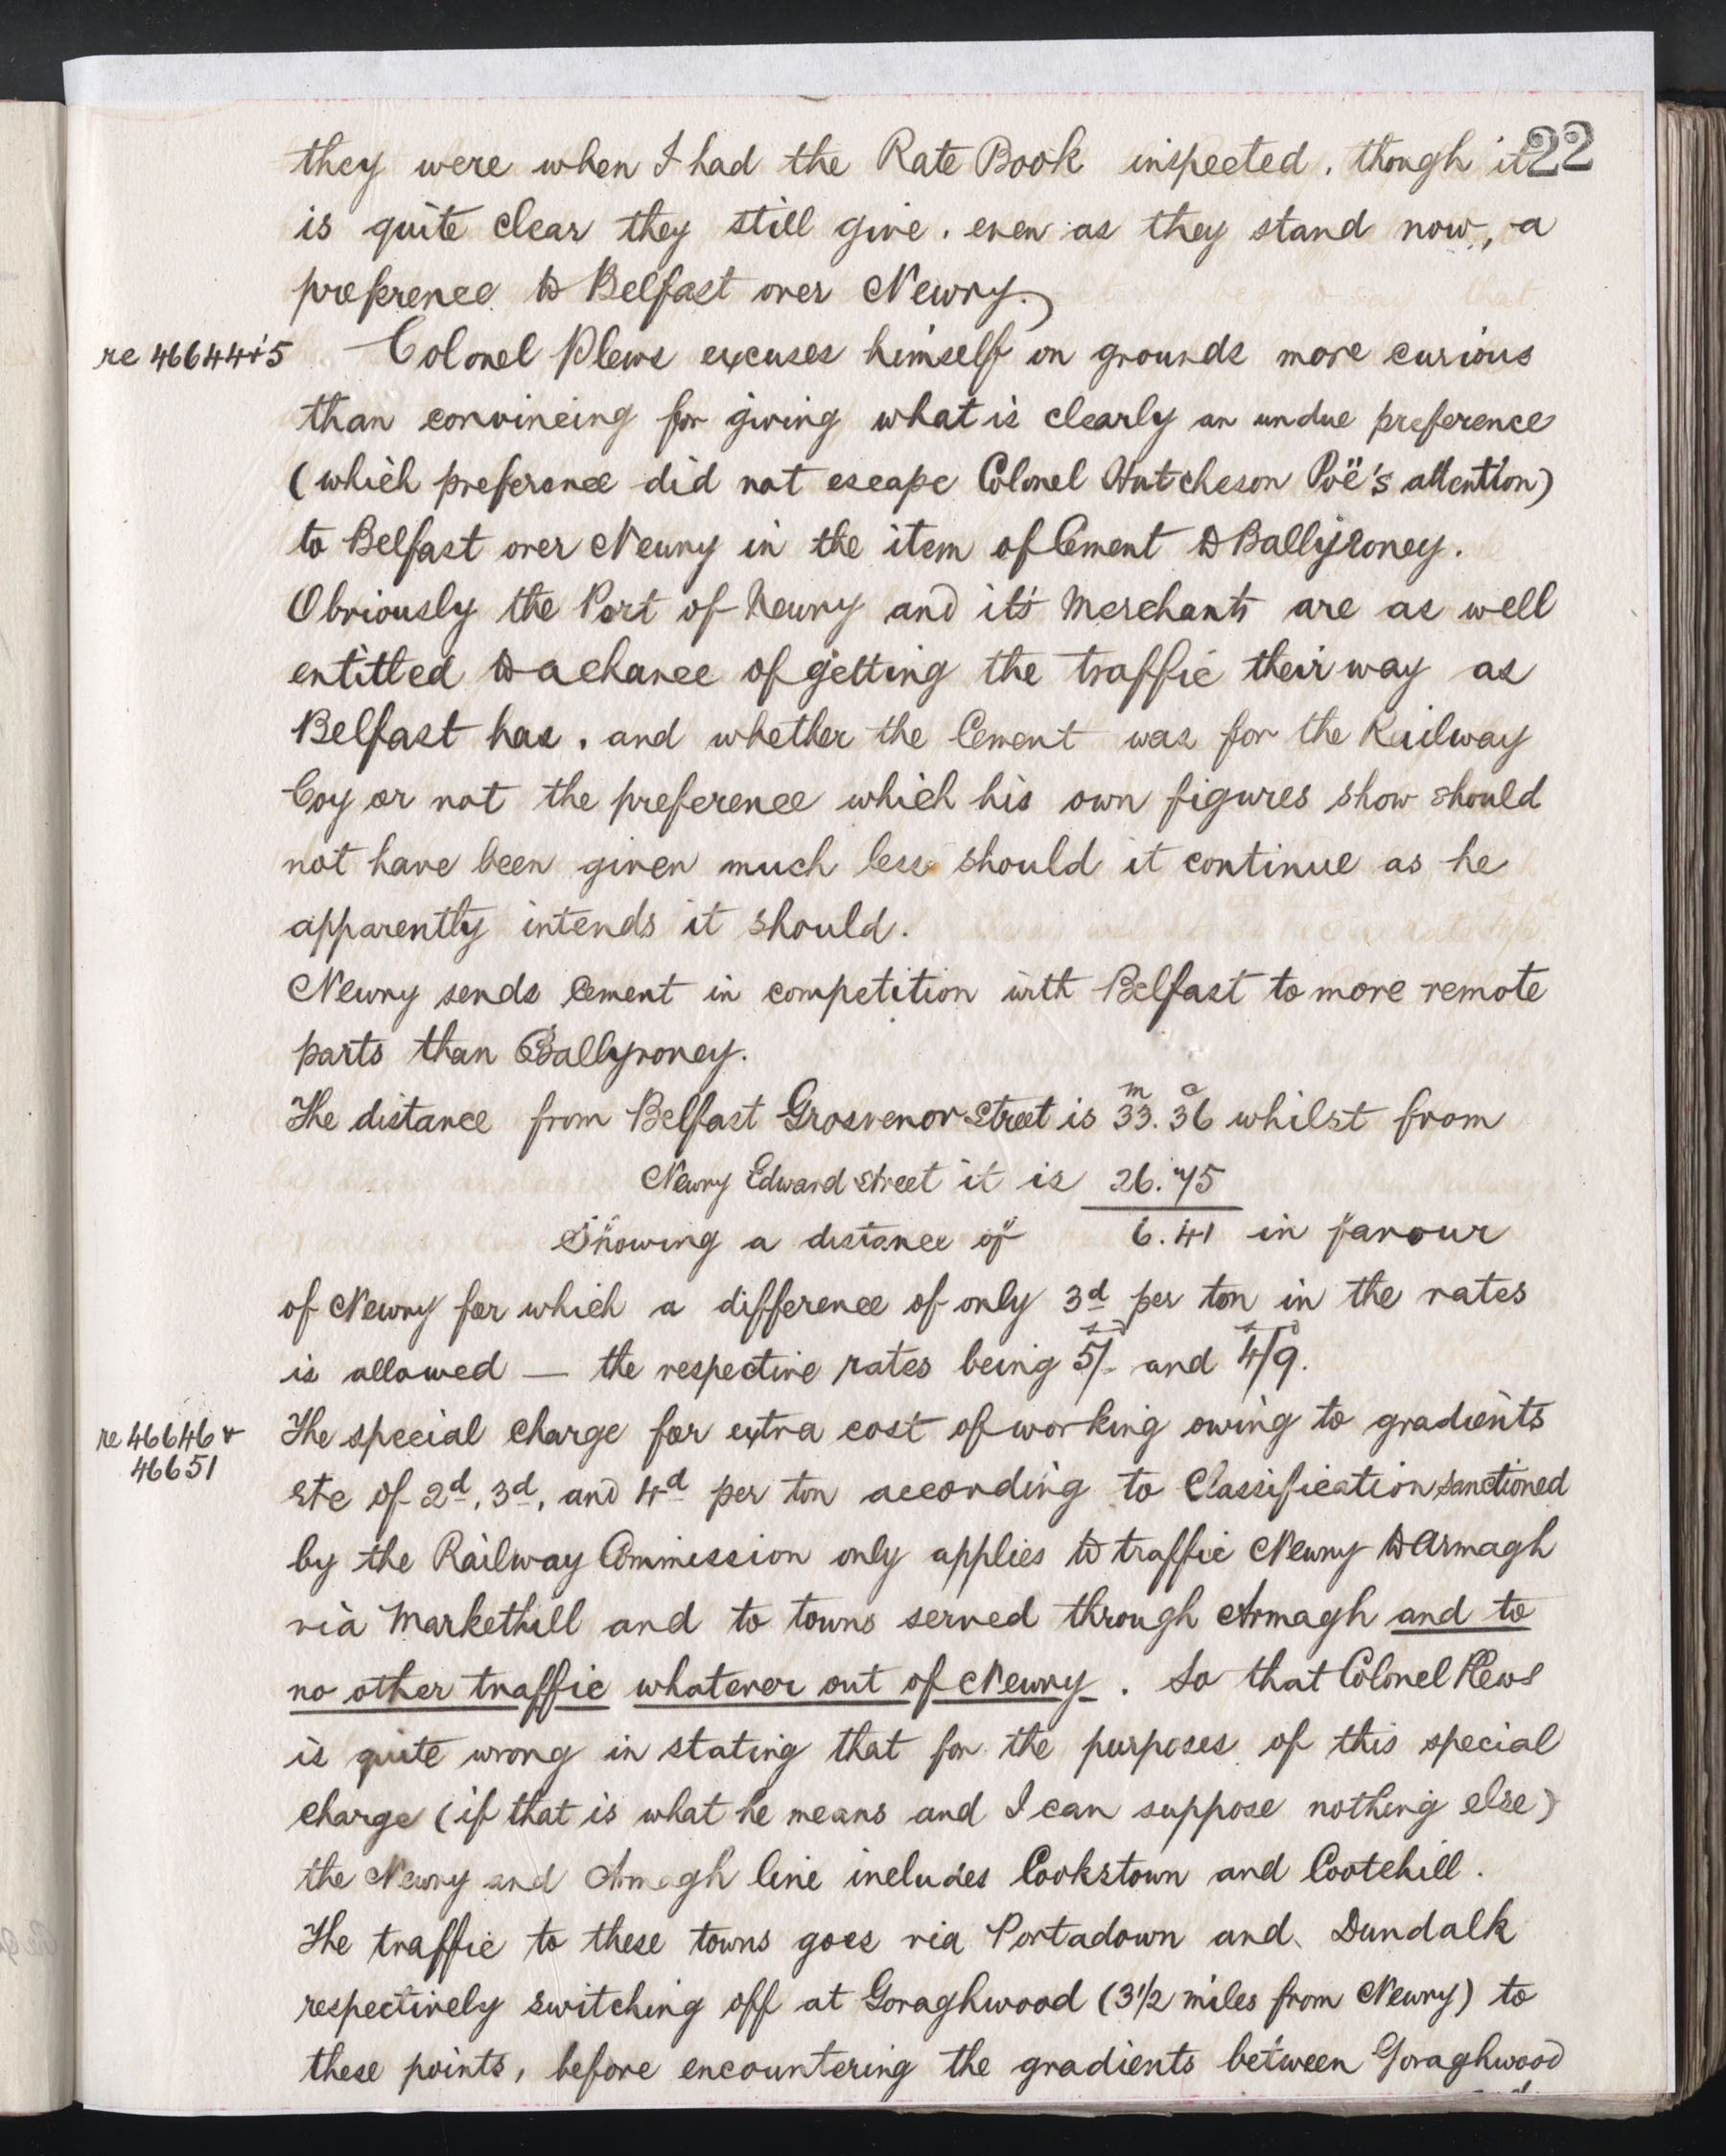 22
they were when I had the Rate Book inspected, though it
is quite clear they still give, even as they stand now, a
preference to Belfast over Newry.
re 46644+5 Colonel Plews excuses himself on grounds more curious
than convincing for giving what is clearly an undue preference
(which preference did not escape Colonel Hutcheson Poë's attention)
to Belfast over Newry in the item of Cement to Ballyroney.
Obviously the Port of Newry and it's Merchants are as well
entitled to a chance of getting the traffic their way as
Belfast has, and whether the Cement was for the Railway
Coy or not the preference which his own figures show should
not have been given much less should it continue as he
apparently intends it should.
Newry sends Cement in competition with Belfast to more remote
parts than Ballyroney.
m c
The distance from Belfast Grosvenor Street is 33. 36 whilst from
Newry Edward Street it is 26. 75
Showing a distance of 6. 41 in favour
of Newry for which a difference of only 3d per ton in the rates
is allowed — the respective rates being 5/- and 4/9.
re 46646 & The special charge for extra cost of working owing to gradients
46651
etc of 2d, 3d, and 4d per ton according to Classification sanctioned
by the Railway Commission only applies to traffic Newry to Armagh
via Markethill and to towns served through Armagh and to
no other traffic whatever out of Newry. So that Colonel Plews
is quite wrong in stating that for the purposes of this special
charge (if that is what he means and I can suppose nothing else)
the Newry and Armagh line includes Cookstown and Cootehill.
The traffic to these towns goes via Portadown and Dundalk
respectively switching off at Goraghwood (3½ miles from Newry) to
these points, before encountering the gradients between Goraghwood